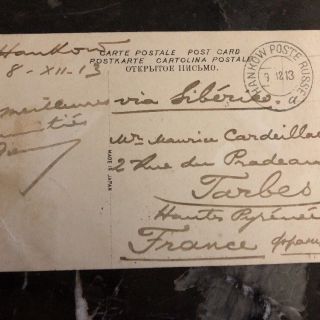 Hankow
8-XII-13
CARTE POSTALE POST CARD
POSTKARTE CARTOLINA POSTALE
ОТКРЫТОЕ ПИСЬМО.
HANKOW POSTE RUSSE
9 12 13
a
meilleures
via Sibérie
Mr Maurice Cardeillac
2 Rue du Pradeau
Tarbes
Hauts Pyréné
France Франц
MADE IN JAPAN